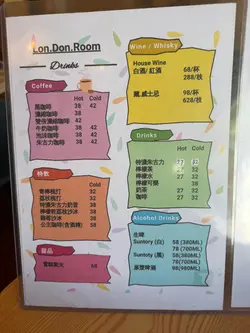 Lon.Don.Room
Drinks
Coffee
Hot Cold
馬咖啡 38 42
濃縮咖啡 32
雙倍濃縮咖啡 38
牛奶咖啡 38 42
泡沫咖啡 38 42
朱古力咖啡 38 42
特飲
Cold
青檸梳打 38
荔枝梳打 38
特濃朱古力奶昔 38
檸檬老荔枝沙冰 38
沙冰 38
公主咖啡(含酒精) 58
甜品
58
Wine / Whisky
House Wine
白酒/紅酒 68/杯
288/枝
威士忌 98/杯
628/枝
Drinks
Hot Cold
特濃朱古力
檸檬茶
檸檬水 27 32
檸檬可樂 32
奶茶 27 32
咖啡 27 32
Alcohol Drinks
生啤
Suntory (白) 58 (380ML)
78(700ML)
Suntory (黑) 58 (380ML)
78(700ML)
原漿啤酒 98(980ML)